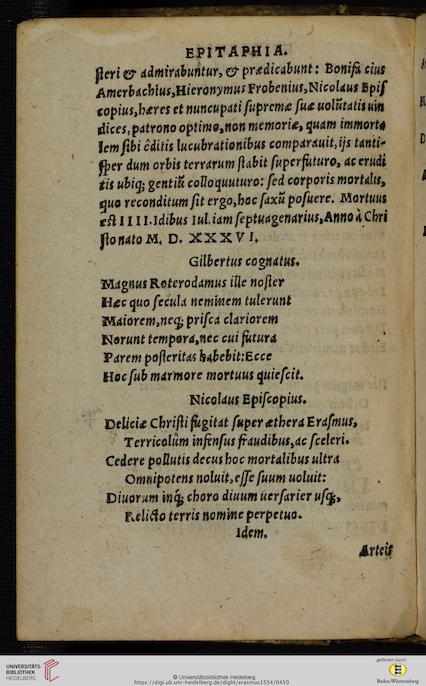 EPITAPHIA.
steri & admirabuntur, & prædicabunt: Bonifa cius
Amerbachius, Hieronymus Frobenius, Nicolaus Epis
copius, hæres et nuncupati supremæ suæ uolũtatis uin
dices, patrono optimo, non memoriæ, quam immorta
lem sibi éditis lucubrationibus comparauit, ijs tanti-
sper dum orbis terrarum stabit superfuturo, ac erudi
tis ubiq; gentiũ colloquuturo: sed corporis mortalis,
quo reconditum sit ergo, hoc saxũ posuere. Mortuus
est IIII. Idibus Iul. iam septuagenarius, Anno à Chri
sto nato M. D. XXXVI.
Gilbertus cognatus.
Magnus Roterodamus ille noster
Hæc quo secula neminem tulerunt
Maiorem, neq; prisca clariorem
Norunt tempora, nec cui futura
Parem posteritas habebit: Ecce
Hoc sub marmore mortuus quiescit.
Nicolaus Episcopius.
Deliciæ Christi fugitat super æthera Erasmus,
Terricolûm infensus fraudibus, ac sceleri.
Cedere pollutis decus hoc mortalibus ultra
Omnipotens noluit, esse suum uoluit:
Diuorum inq; choro diuum uersarier usq;,
Relicto terris nomine perpetuo.
Idem.
Arteis
UNIVERSITÄTS-
BIBLIOTHEK
HEIDELBERG
© Universitätsbibliothek Heidelberg
https://digi.ub.uni-heidelberg.de/diglit/erasmus1554/0450
gefördert durch
Baden-Württemberg